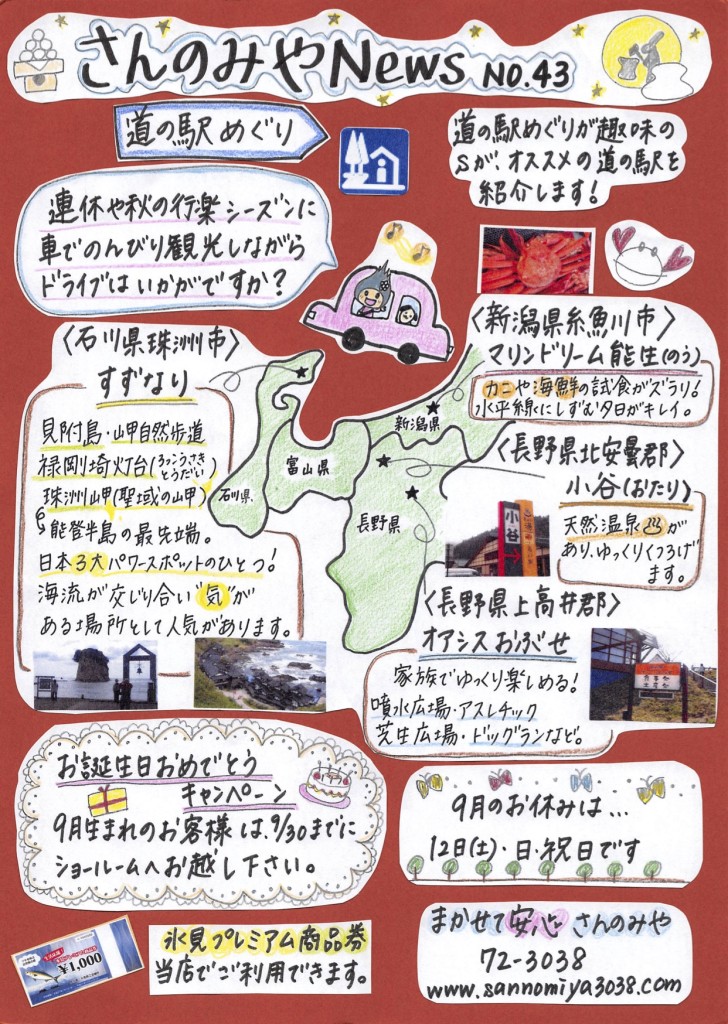 さんのみやNews NO.43
道の駅めぐり
道の駅めぐりが趣味の
Sが、オススメの道の駅を
紹介します!
連休や秋の行楽シーズンに
車でのんびり観光しながら
ドライブはいかがですか?
〈石川県珠洲市〉
すずなり
見附島・山甲自然歩道
禄剛埼灯台(ろっこうさき
とうだい)
珠洲岬(聖域の岬)
能登半島の最先端。
日本3大パワースポットのひとつ!
海流が交じり合い"気"が
ある場所として人気があります。
〈新潟県糸魚川市〉
マリンドリーム能生(のう)
カニや海鮮の試食がズラリ!
水平線にしずむ夕日がキレイ。
新潟県
富山県
石川県
長野県
〈長野県北安曇郡〉
小谷(おたり)
天然温泉♨が
あり、ゆっくりくつろげ
ます。
小谷
〈長野県上高井郡〉
オアシスおぶせ
家族でゆっくり楽しめる!
噴水広場・アスレチック
芝生広場・ドッグランなど。
お誕生日おめでとう
キャンペーン
9月生まれのお客様は、9/30までに
ショールームへお越し下さい。
9月のお休みは…
12日(土)・日・祝日です
氷見プレミアム商品券
当店でご利用できます。
¥1,000
まかせて安心 さんのみや
72-3038
www.sannomiya3038.com